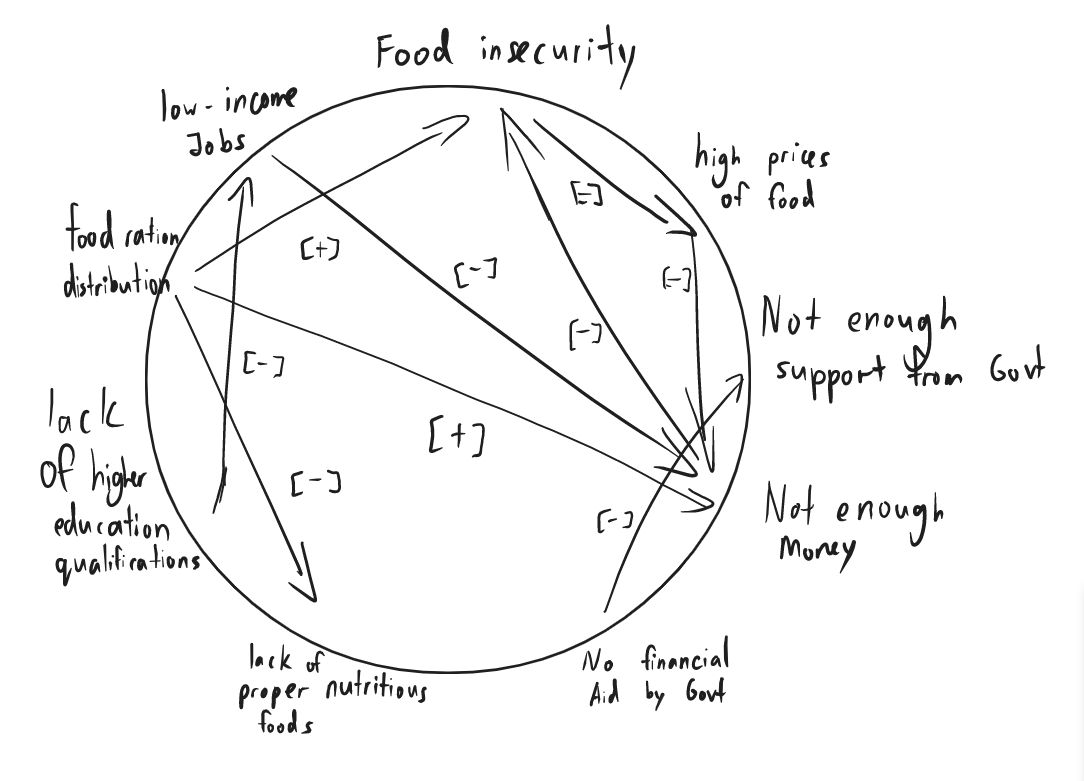 Food insecurity
low-income
Jobs
high prices
of food
food ration
distribution
[-]
[+]
[-]
[-]
[-]
Not enough
support from Govt
[-]
lack
of higher
education
qualifications
[+]
[-]
[-]
Not enough
Money
lack of
proper nutritious
foods
No financial
Aid by Govt